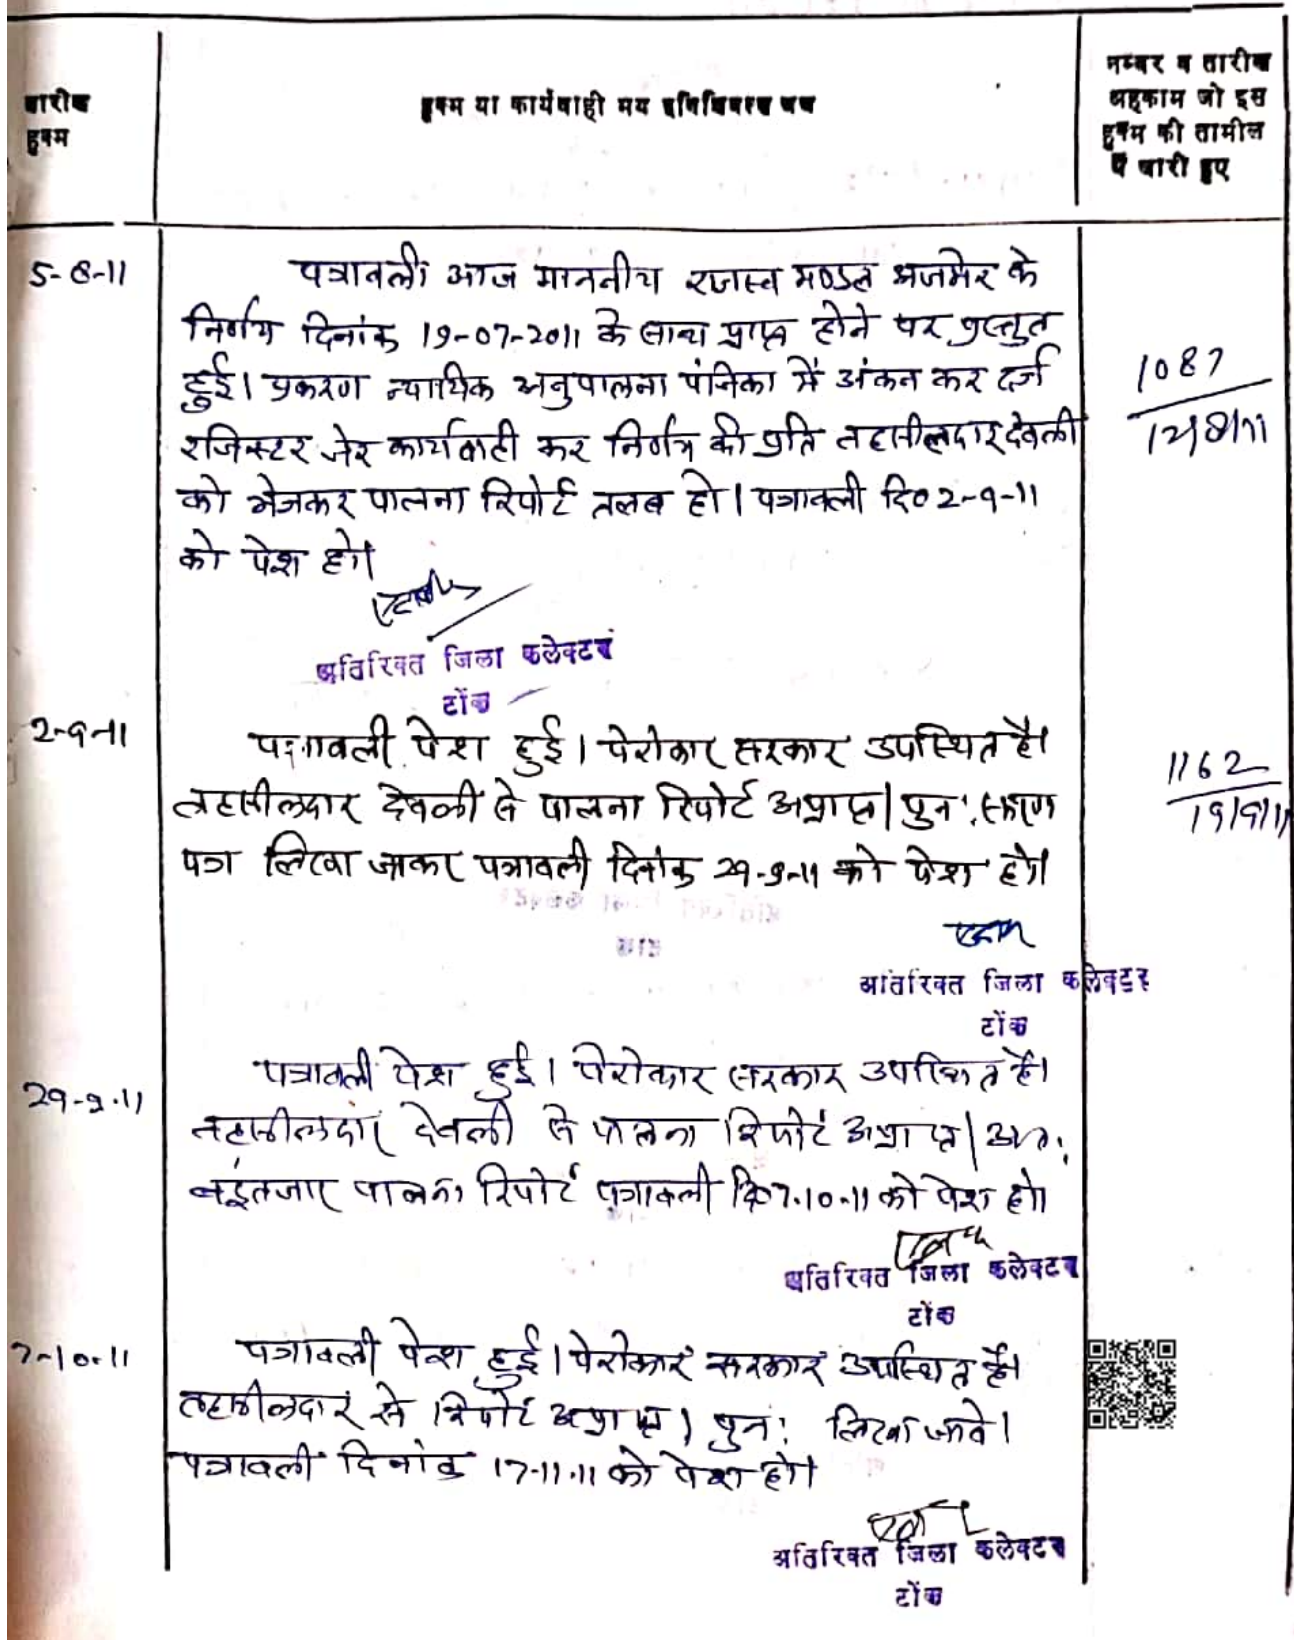 तारीख
हुक्म
हुक्म या कार्यवाही मय इनिशियल्स जज
नम्बर व तारीख
अहकाम जो इस
हुक्म की तामील
में जारी हुए
5-8-11
पत्रावली आज माननीय राजस्व मण्डल अजमेर के
निर्णय दिनांक 19-07-2011 के साथ प्राप्त होने पर प्रस्तुत
हुई। प्रकरण न्यायिक अनुपालना पंजिका में अंकन कर दर्ज
रजिस्टर जेर कार्यवाही कर निर्णय की प्रति तहसीलदार देवली
को भेजकर पालना रिपोर्ट तलब हो। पत्रावली दि० 2-9-11
को पेश हो।
1087
12/8/11
अतिरिक्त जिला कलेक्टर
टोंक
2-9-11
पत्रावली पेश हुई। पेरोकार सरकार उपस्थित है।
तहसीलदार देवली से पालना रिपोर्ट अप्राप्त। पुनः स्मरण
पत्र लिखा जाकर पत्रावली दिनांक 29-9-11 को पेश हो।
1162
19/9/11
अतिरिक्त जिला कलेक्टर
टोंक
29-9-11
पत्रावली पेश हुई। पेरोकार सरकार उपस्थित है।
तहसीलदार देवली से पालना रिपोर्ट अप्राप्त। अतः
बइंतजार पालना रिपोर्ट पत्रावली दि० 7-10-11 को पेश हो।
अतिरिक्त जिला कलेक्टर
टोंक
7-10-11
पत्रावली पेश हुई। पेरोकार सरकार उपस्थित है।
तहसीलदार से रिपोर्ट अप्राप्त। पुनः लिखा जावे।
पत्रावली दिनांक 17-11-11 को पेश हो।
अतिरिक्त जिला कलेक्टर
टोंक